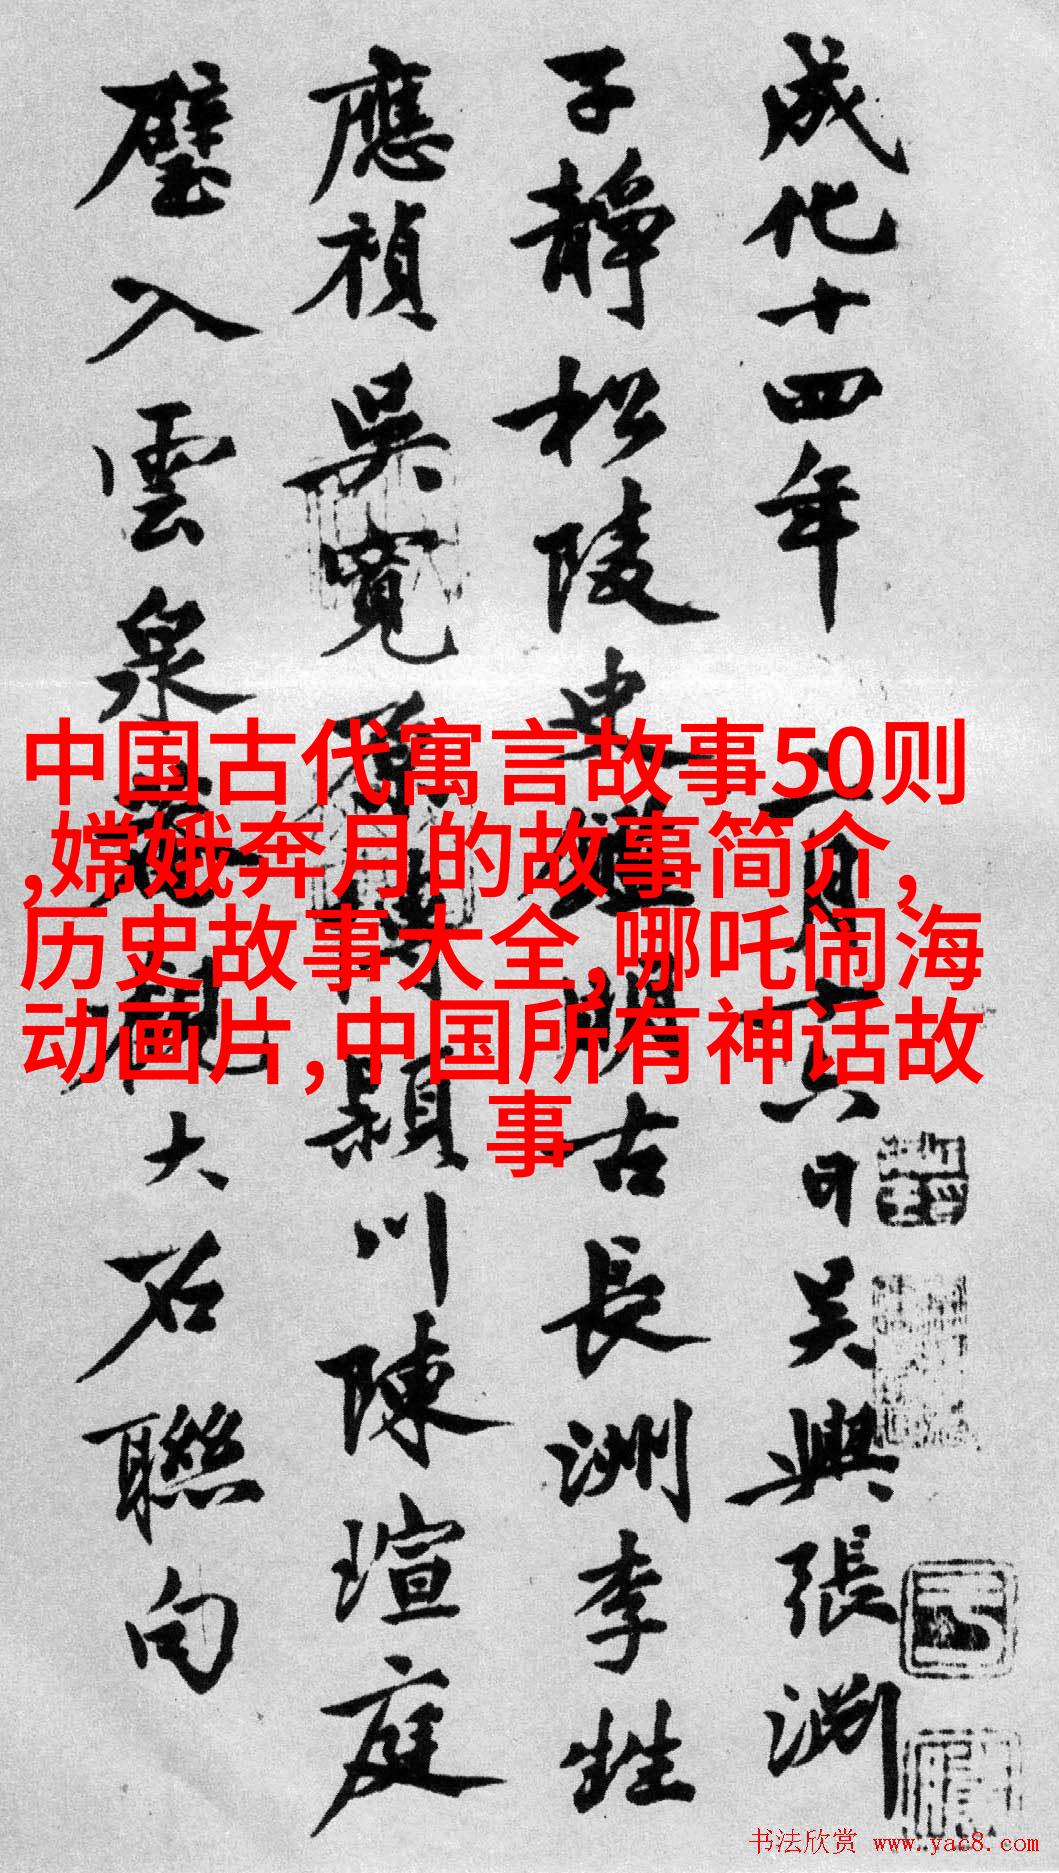 成化十四年二月十六日吳興張淵
子靜松陵史鑑明古長洲李甡
應禎吳寬原博潁川陳瑄庭
璧入雲泉菴觀大石聯句
中国古代寓言故事50则
,嫦娥奔月的故事简介,
历史故事大全,哪吒闹海
动画片,中国所有神话故
事
书法欣赏 www.yac8.com